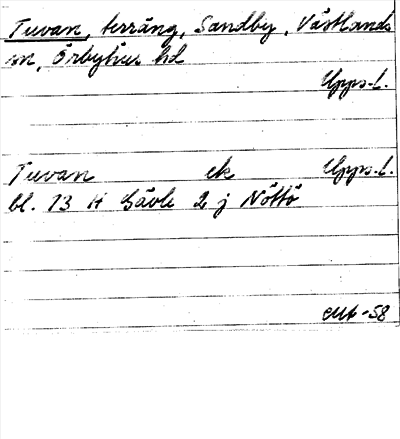 Tuvan, terräng, Sandby, Västlands
sn, Örbyhus hd
Upps. l.
Tuvan ek Upps. l.
bl. 13 H Gävle 2 j Nöttö
-58